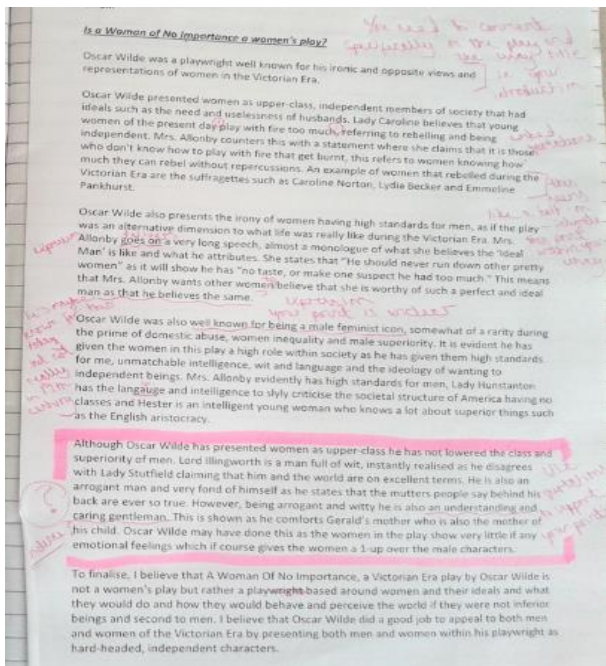 Is a Woman of No Importance a women's play?
You need to comment
specifically on the play and
in your
introduction
Oscar Wilde was a playwright well known for his ironic and opposite views and
representations of women in the Victorian Era.
Oscar Wilde presented women as upper-class, independent members of society that had
ideals such as the need and uselessness of husbands. Lady Caroline believes that young
women of the present day play with fire too much, referring to rebelling and being
independent. Mrs. Allonby counters this with a statement where she claims that it is those
who don't know how to play with fire that get burnt, this refers to women knowing how
much they can rebel without repercussions. An example of women that rebelled during the
Victorian Era are the suffragettes such as Caroline Norton, Lydie Becker and Emmeline
Pankhurst.
Oscar Wilde also presents the irony of women having high standards for men, as if the play
was an alternative dimension to what life was really like during the Victorian Era. Mrs.
Allonby goes on a very long speech, almost a monologue of what she believes the 'Ideal
Man' is like and what he attributes. She states that "He should never run down other pretty
women" as it will show he has "no taste, or make one suspect he had too much." This means
that Mrs. Allonby wants other women believe that she is worthy of such a perfect and ideal
man as that he believes the same.
expression
your point is unclear
Oscar Wilde was also well known for being a male feminist icon, somewhat of a rarity during
the prime of domestic abuse, women inequality and male superiority. It is evident he has
given the women in this play a high role within society as he has given them high standards
for me, unmatchable intelligence, wit and language and the ideology of wanting to
independent beings. Mrs. Allonby evidently has high standards for men, Lady Hunstanton
has the langauge and intelligence to slyly criticise the societal structure of America having no
classes and Hester is an intelligent young woman who knows a lot about superior things such
as the English aristocracy.
Although Oscar Wilde has presented women as upper-class he has not lowered the class and
superiority of men. Lord Illingworth is a man full of wit, instantly realised as he disagrees
with Lady Stutfield claiming that him and the world are on excellent terms. He is also an
arrogant man and very fond of himself as he states that the mutters people say behind his
back are ever so true. However, being arrogant and witty he is also an understanding and
caring gentleman. This is shown as he comforts Gerald's mother who is also the mother of
his child. Oscar Wilde may have done this as the women in the play show very little if any
emotional feelings which if course gives the women a 1-up over the male characters.
?
Use
quotations
to support
your points
To finalise, I believe that A Woman Of No Importance, a Victorian Era play by Oscar Wilde is
not a women's play but rather a playwright based around women and their ideals and what
they would do and how they would behave and perceive the world if they were not inferior
beings and second to men. I believe that Oscar Wilde did a good job to appeal to both men
and women of the Victorian Era by presenting both men and women within his playwright as
hard-headed, independent characters.